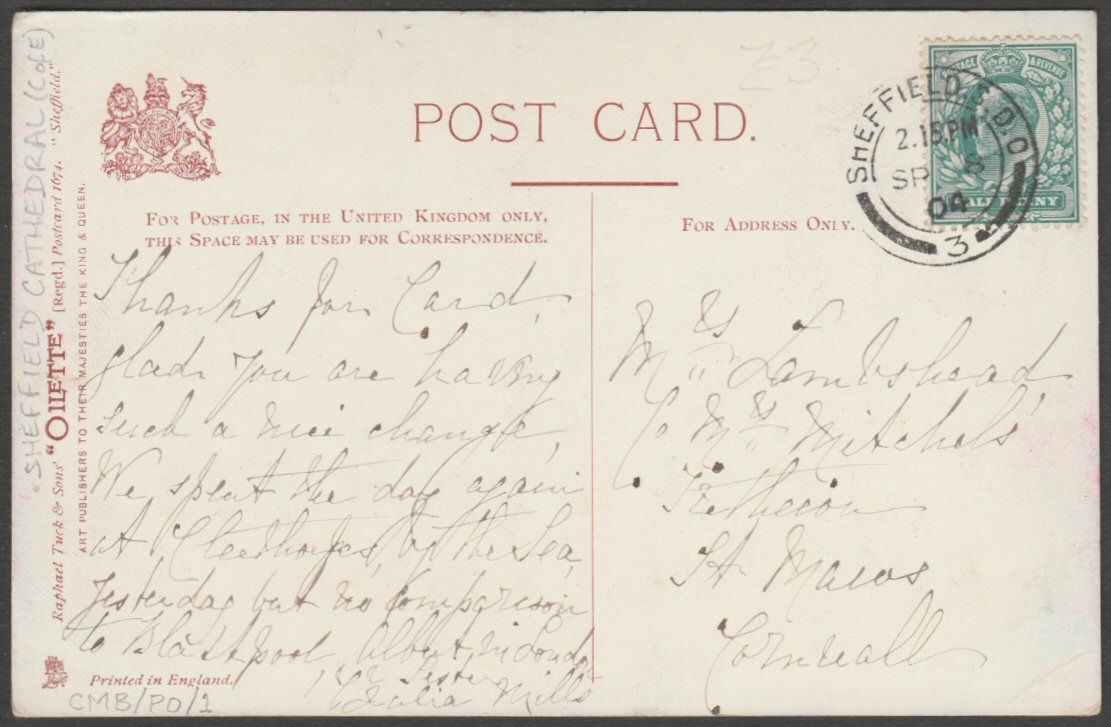 POST CARD.
FOR POSTAGE, IN THE UNITED KINGDOM ONLY,
THIS SPACE MAY BE USED FOR CORRESPONDENCE.
FOR ADDRESS ONLY.
SHEFFIELD S.D.O
2.15.PM
SP 8
04
3
POSTAGE & REVENUE
HALF PENNY
Thanks for Card,
glad you are having
such a nice change,
We spent the day again
at Cleethorpes, by the Sea,
yesterday but no Comparison
to Blackpool Albert in
Sister
Mills
Mrs Lambshead
C/o Mrs Mitchels'
St Maws
Cornwall
SHEFFIELD CATHEDRAL (CofE)
Raphael Tuck & Sons' "OILETTE" [Regd.] Postcard 1674. "Sheffield."
ART PUBLISHERS TO THEIR MAJESTIES THE KING & QUEEN.
Printed in England.
CMB/PO/1